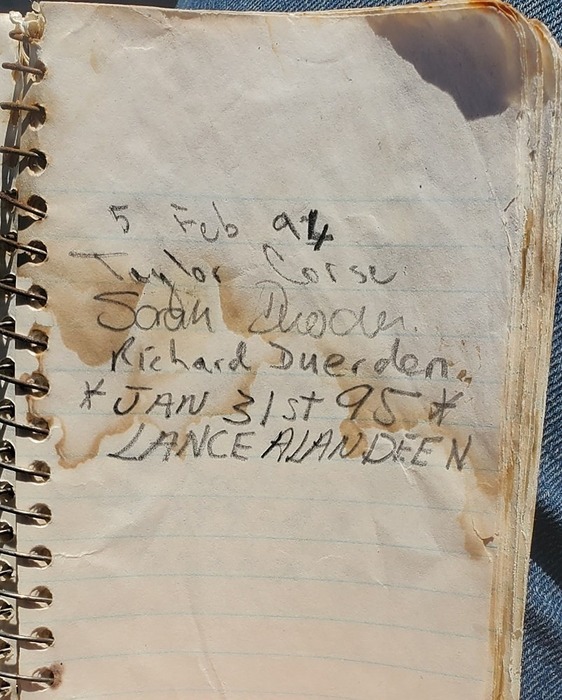 5 Feb 94
Taylor Corse
Sarah
Richard Duerden
* JAN 31st 95 *
LANCE ALAN DEEN